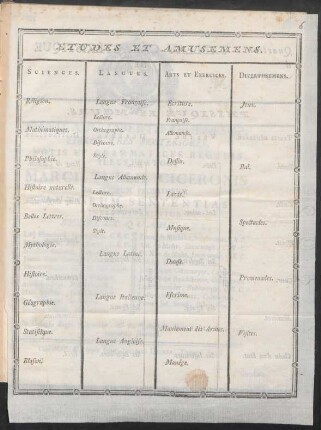 ETUDES ET AMUSEMENS.
SCIENCES.
Religion.
Mathématiques.
Philosophie.
Histoire naturelle.
Belles Lettres.
Mythologie.
Histoire.
Géographie.
Statistique.
Blason.
LANGUES.
Langue Françoise.
Lecture.
Orthographe.
Discours.
Style.
Langue Allemande.
Lecture.
Orthographe.
Discours.
Style.
Langue Latine.
Langue Italienne.
Langue Angloise.
ARTS ET EXERCICES.
Ecriture.
Françoise.
Allemande.
Dessin.
Musique.
Danse.
Escrime.
Maniement des Armes.
Manége.
DIVERTISSEMENS.
Jeux.
Bal.
Spectacles.
Promenades.
Visites.